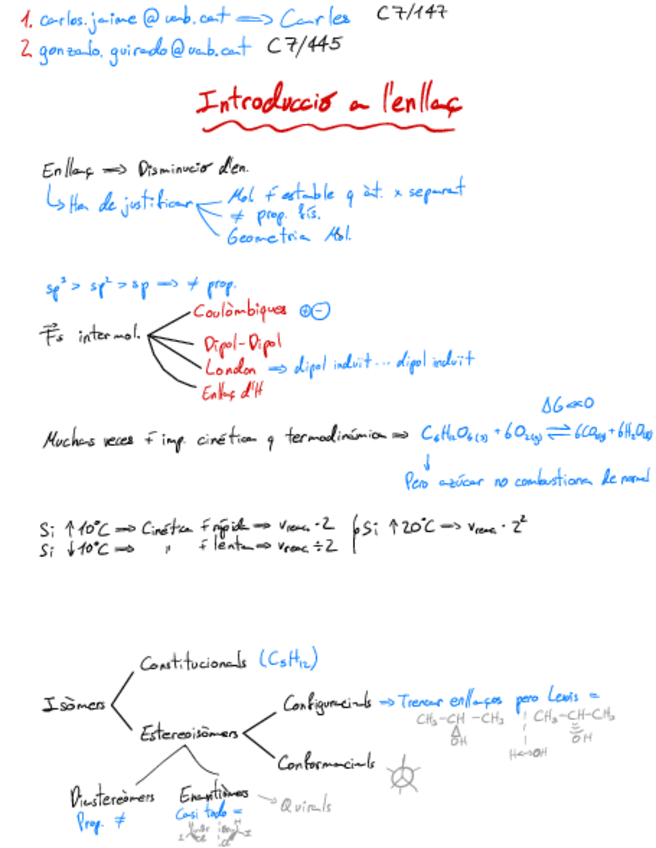 1. carlos.jaime@uab.cat ⟹ Carles C7/147
2. gonzalo.guirado@uab.cat C7/445
Introducció a l'enllaç
Enllaç ⟹ Disminució d'en.
↳ Ha de justificar
Mol + estable q àt. x separat
≠ prop. fís.
Geometria Mol.
sp³ > sp² > sp ⟹ ≠ prop.
F⃗s intermol.
Coulòmbiques ⊕⊖
Dipol-Dipol
London ⟹ dipol induït...dipol induït
Enllaç d'H
ΔG<<0
Muchas veces + imp. cinética q termodinámica ⟹ C₆H₁₂O₆(s) + 6O₂(g) ⇌ 6CO₂(g) + 6H₂O(g)
↓
Pero azúcar no combustiona de normal
Si ↑10°C ⟹ Cinética + rápida ⟹ vreac · 2 Si ↑20°C ⟹ vreac · 2²
Si ↓10°C ⟹ " + lenta ⟹ vreac ÷ 2
Constitucionals (C₅H₁₂)
Isòmers
Configuracionals ⟹ Trencar enllaços pero Lewis =
CH₃-CH-CH₃ CH₃-CH-CH₃
OH OH
Estereoisòmers
H↔OH
Conformacionals
Diastereòmers Enantiòmers → Quirals
Prop. ≠ Casi todo =